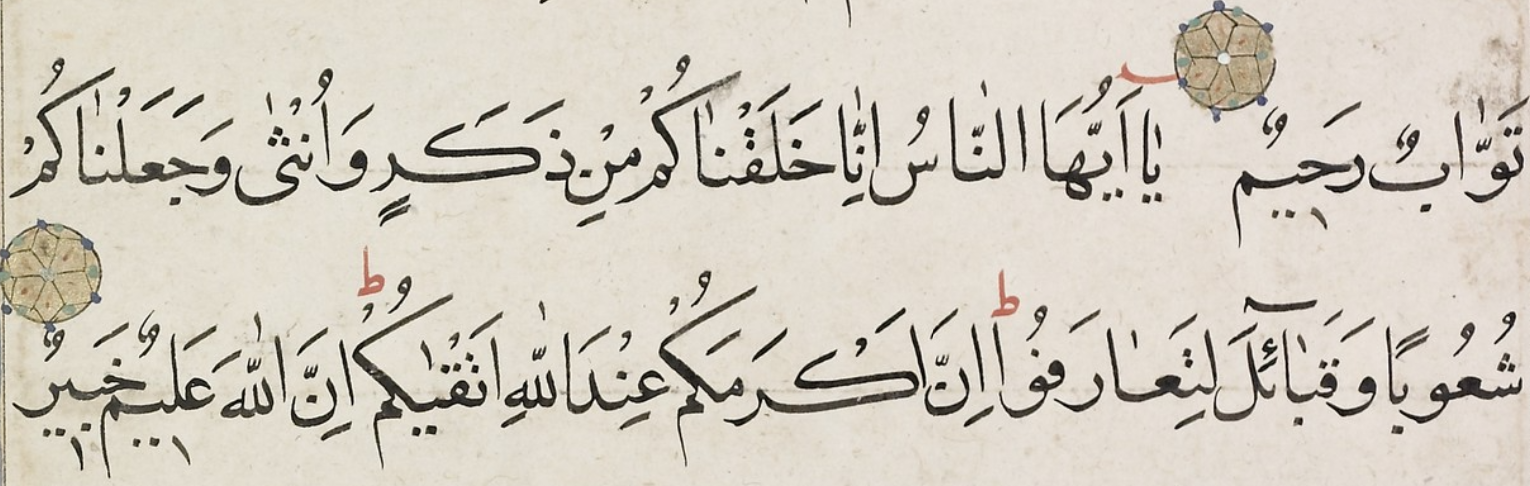 تَوَّابٌ رَحيمٌ يٰا اَيُّهَا النّٰاسُ اِنّٰا خَلَقْنٰاكُمْ مِنْ ذَكَرٍ وَاُنْثٰى وَجَعَلْنٰاكُمْ
شُعُوبًا وَقَبٰٓائِلَ لِتَعٰارَفُوا ط اِنَّ اَكْرَمَكُمْ عِنْدَ اللّٰهِ اَتْقٰيكُمْ ط اِنَّ اللّٰهَ عَليمٌ خَبيرٌ